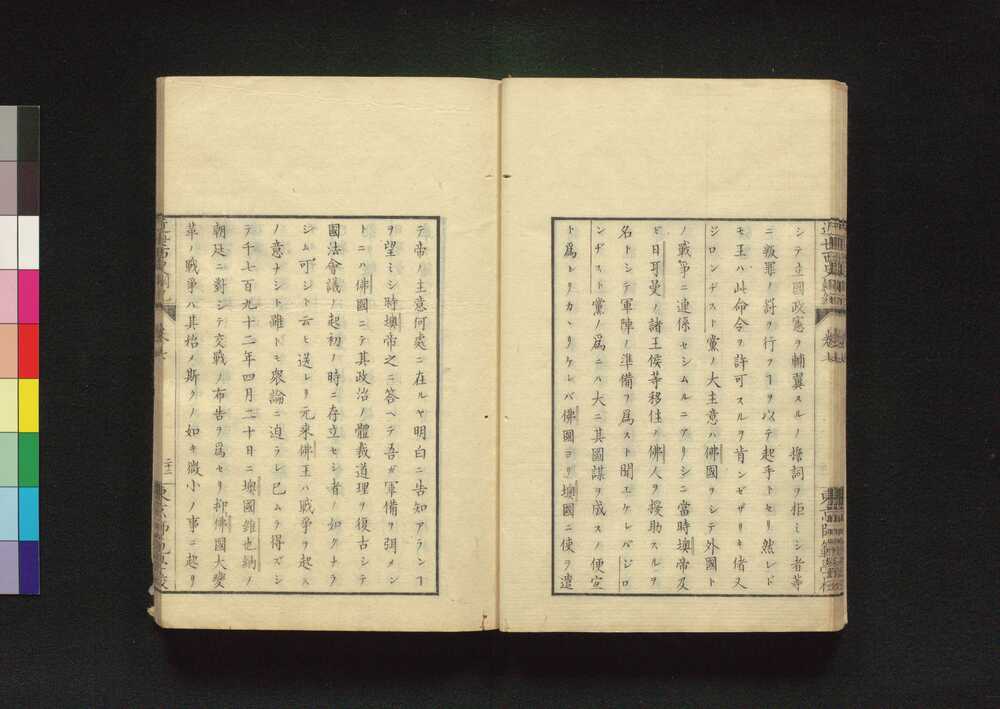 シテ立國政憲ヲ輔翼スルノ擔詞ヲ拒ミシ者等
ニ叛罪ノ罸ヲ行フヿヲ以テ起手トセリ然レド
モ王ハ此命令ヲ許可スルヲ肯ンゼザリキ偖又
ジロンヂスト黨ノ大主意ハ佛國ヲシテ外國ト
ノ戰爭ニ連係セシムルニアリシニ當時墺帝及
ビ日耳曼ノ諸王侯等移住ノ佛人ヲ援助スルヲ
名トシテ軍陣ノ準備ヲ爲スト聞エケレバジロ
ンヂスト黨ノ爲ニハ大ニ其圖謀ヲ成スノ便宜
ト爲レリカヽリケレバ佛國ヨリ墺國ニ使ヲ遣
東京師範學校
テ帝ノ主意何處ニ在ルヤ明白ニ告知アランヿ
ヲ望ミシ時墺帝之ニ答ヘテ吾ガ軍備ヲ弭メン
トニハ佛國ニテ其政治ノ體裁道理ヲ復古シテ
國法會議ノ起初ノ時ニ存立セシ者ノ如クナラ
シム可シト云ヒ送レリ元來佛王ハ戰爭ヲ起ス
ノ意ナシト雖ドモ衆論ニ迫ラレ已ムヲ得ズシ
テ千七百九十二年四月二十日ニ墺國維也納ノ
朝廷ニ對シテ交戰ノ布告ヲ爲セリ抑佛國大變
革ノ戰爭ハ其始メ斯クノ如キ微小ノ事ニ起リ
二十二
東京師範學校